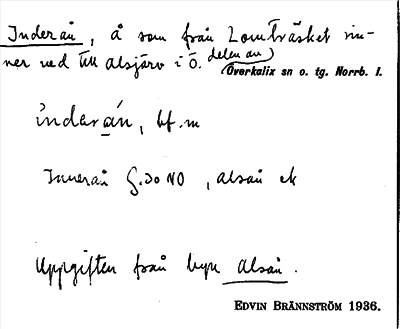 Inderån, å som från Lomträsket rin-
ner ned till Alsjärv i Ö. delen av
Överkalix sn o. tg. Norrb. l.
ìnderán, bf. m
Innerån G. 30 NO, Alsån ek
Uppgiften från byn Alsån.
EDVIN BRÄNNSTRÖM 1936.